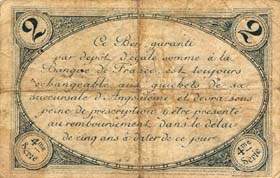 2
2
Ce Bon garanti
par dépôt d'égale somme à la
Banque de France, est toujours
échangeable aux guichets de sa
succursale d'Angoulême et devra sous
peine de prescription être présenté
au remboursement dans le délai
de cinq ans à dater de ce jour.
4me Série
4me Série